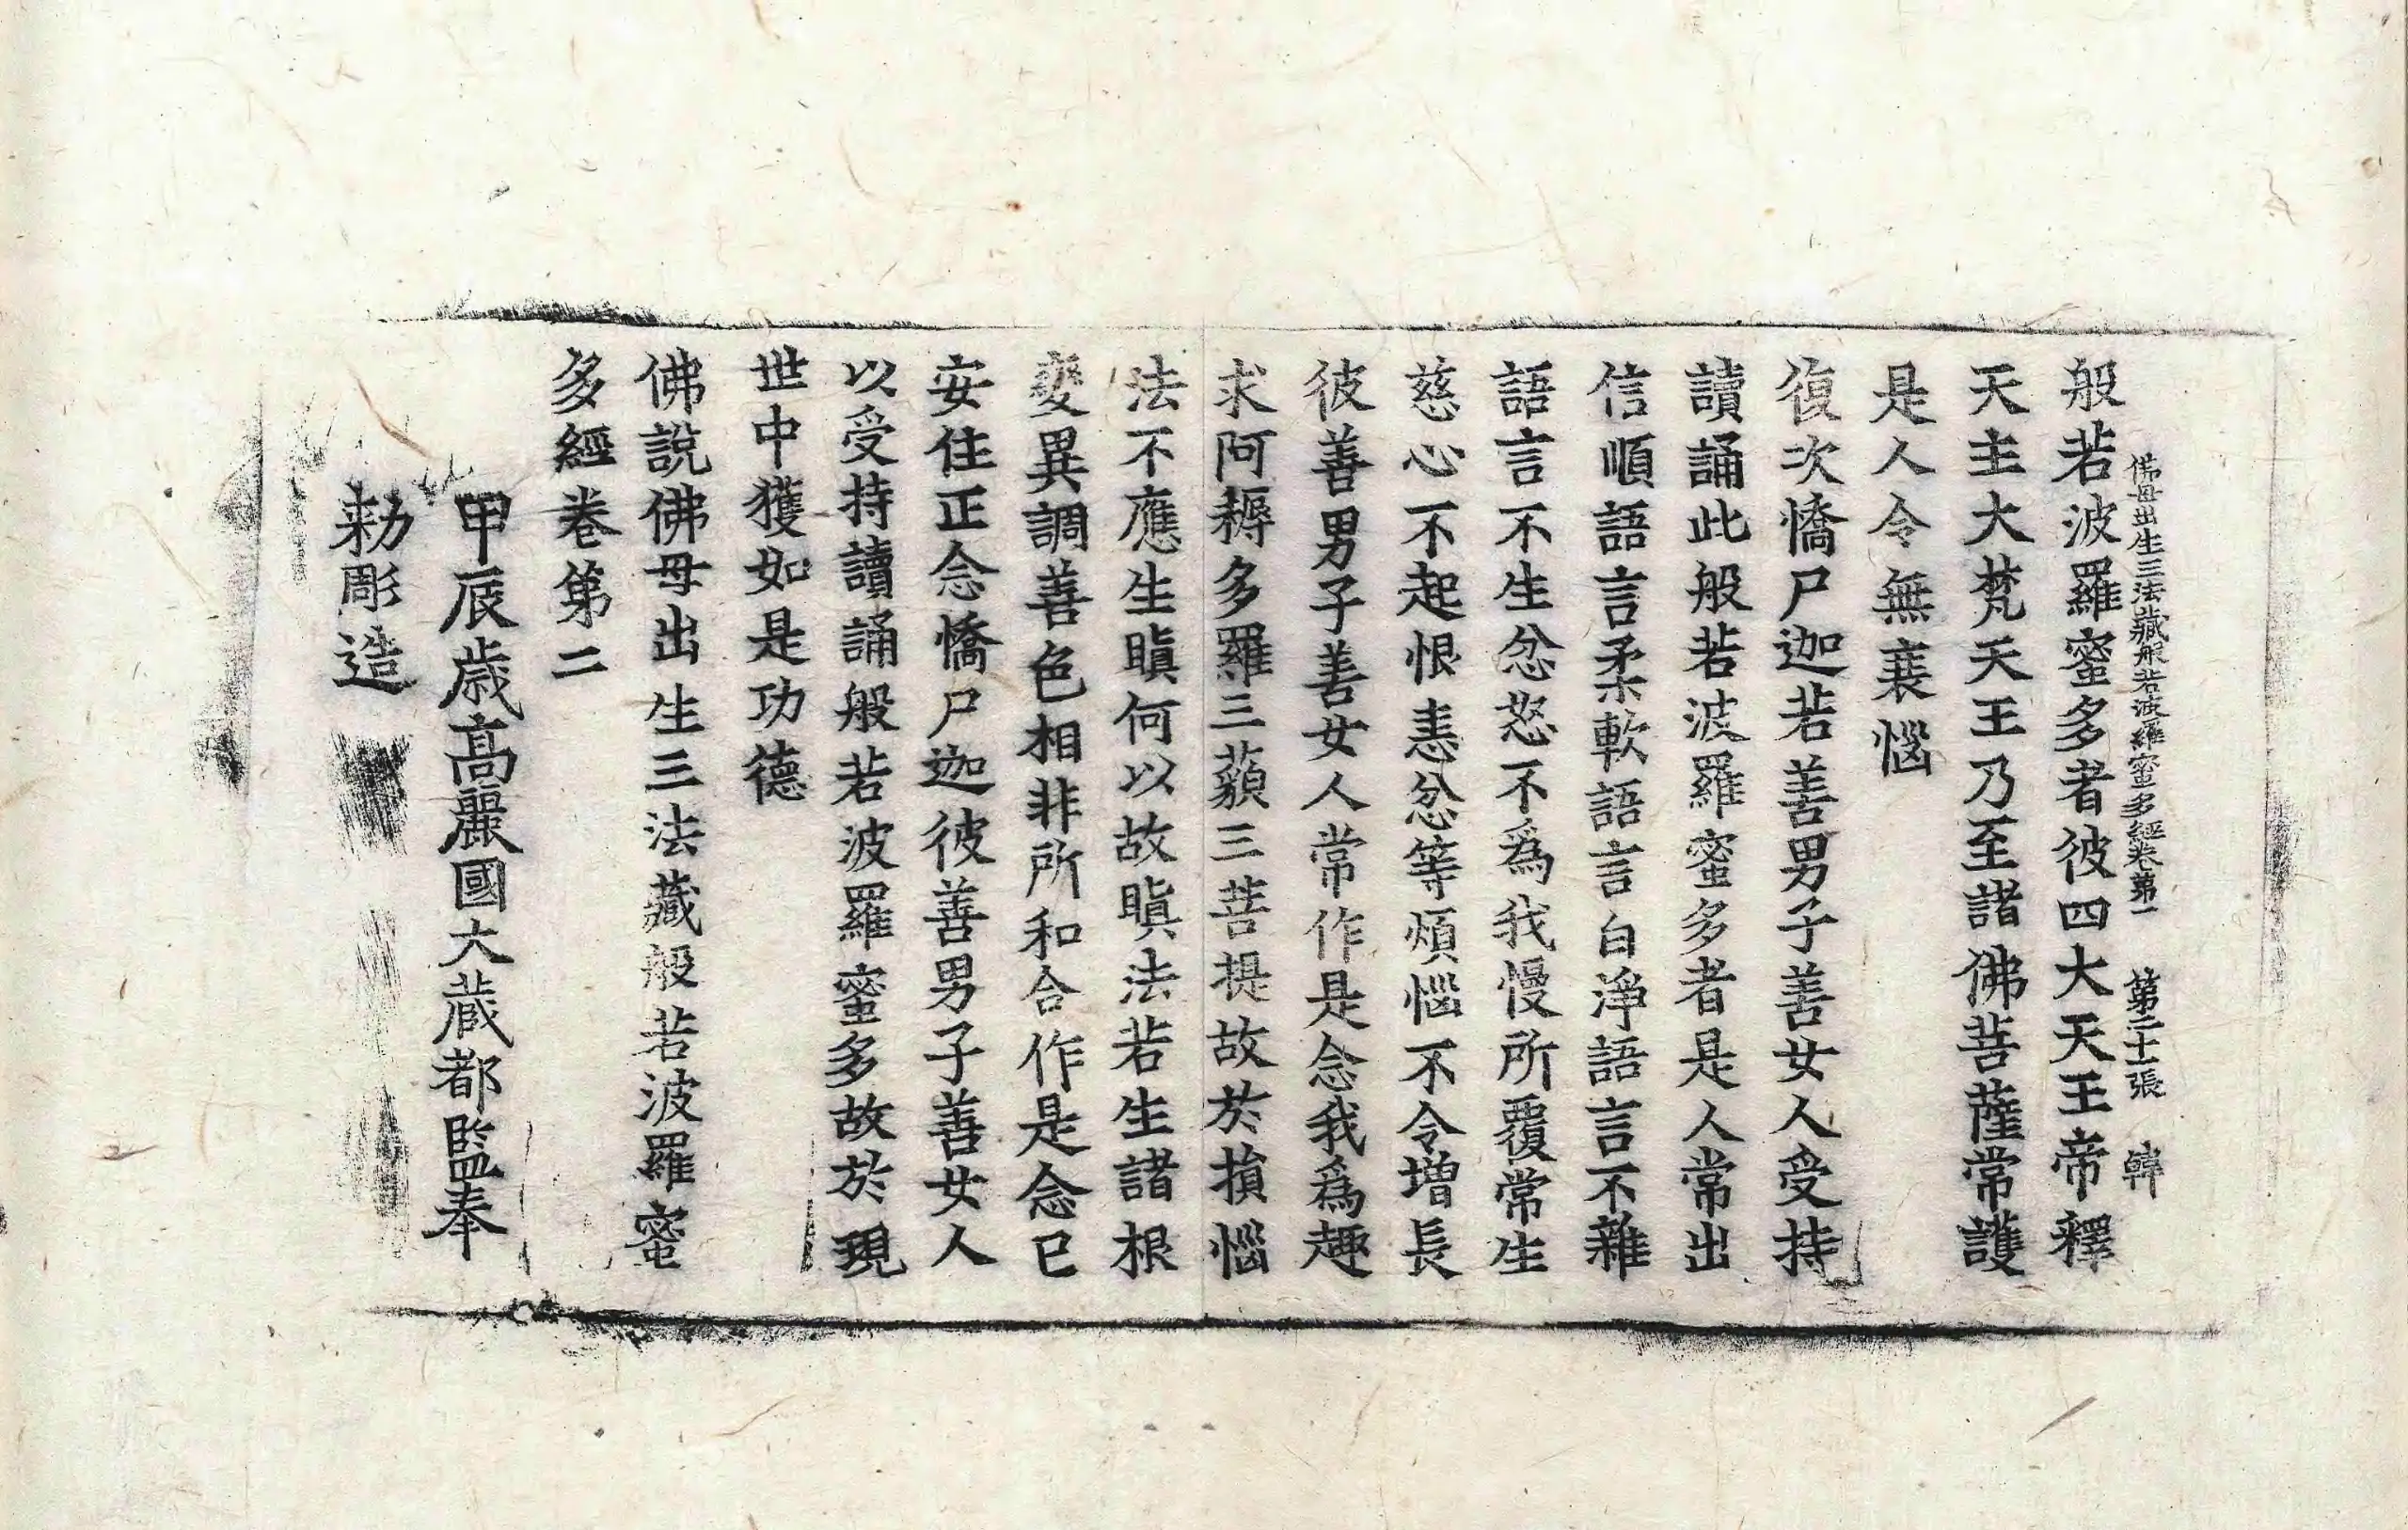 佛母出生三法藏般若波羅蜜多經卷第一 第二十一張 韓
般若波羅蜜多者彼四大天王帝釋
天主大梵天王乃至諸佛菩薩常護
是人令無衰惱
復次憍尸迦若善男子善女人受持
讀誦此般若波羅蜜多者是人常出
信順語言柔軟語言白淨語言不雜
語言不生忿怒不爲我慢所覆常生
慈心不起恨恚忿等煩惱不令增長
彼善男子善女人常作是念我爲趣
求阿耨多羅三藐三菩提故於損惱
法不應生瞋何以故瞋法若生諸根
變異調善色相非所和合作是念已
安住正念憍尸迦彼善男子善女人
以受持讀誦般若波羅蜜多故於現
世中獲如是功德
佛說佛母出生三法藏般若波羅蜜
多經卷第二
甲辰歲高麗國大藏都監奉
勅彫造